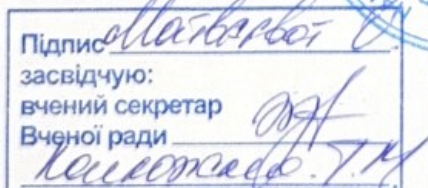 Підпис Матвєєвої
засвідчую:
вчений секретар
Вченої ради
Т.М